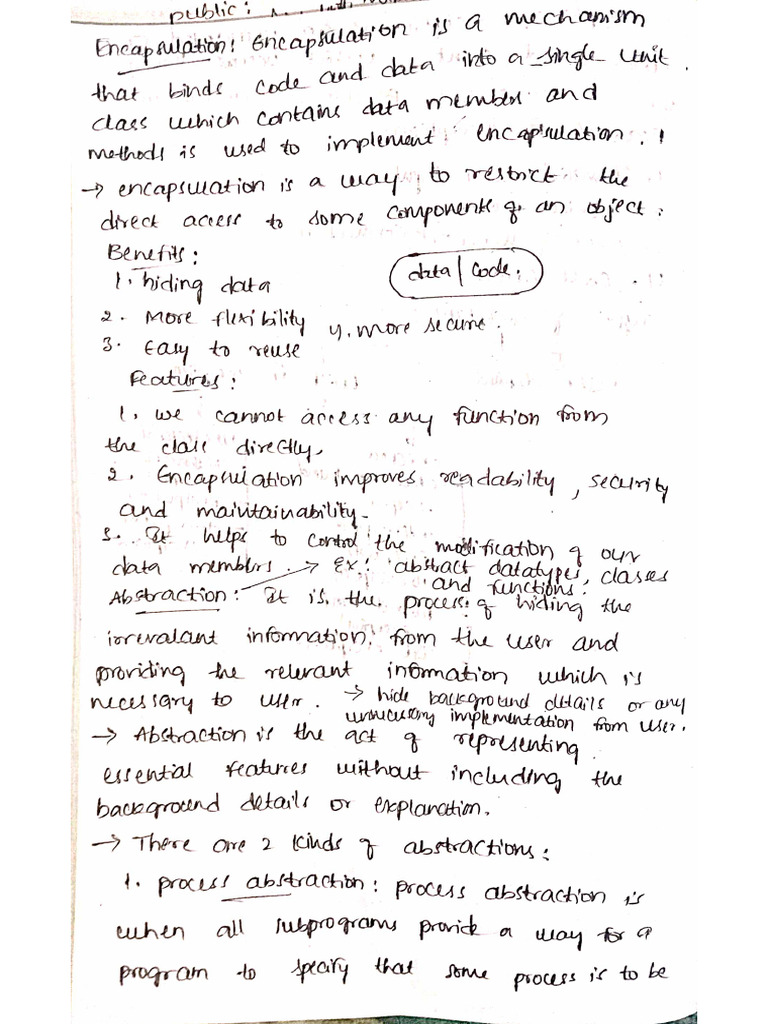 public:
Encapsulation: Encapsulation is a mechanism
that binds code and data into a single unit.
class which contains data member and
methods is used to implement encapsulation.
→ encapsulation is a way to restrict the
direct access to some components of an object.
Benefits:
1. hiding data
data | code.
2. More flexibility
4. more secure.
3. Easy to reuse
Features:
1. we cannot access any function from
the class directly.
2. Encapsulation improves readability, security
and maintainability.
3. It helps to control the modification of our
data members. → Ex: abstract datatypes, classes
and functions.
Abstraction: It is the process of hiding the
irrevalant information from the user and
providing the relevant information which is
necessary to user. → hide background details or any
unnecessary implementation from user.
→ Abstraction is the act of representing
essential features without including the
background details or explanation.
→ There are 2 kinds of abstractions:
1. process abstraction: process abstraction is
when all subprograms provide a way for a
program to specify that some process is to be